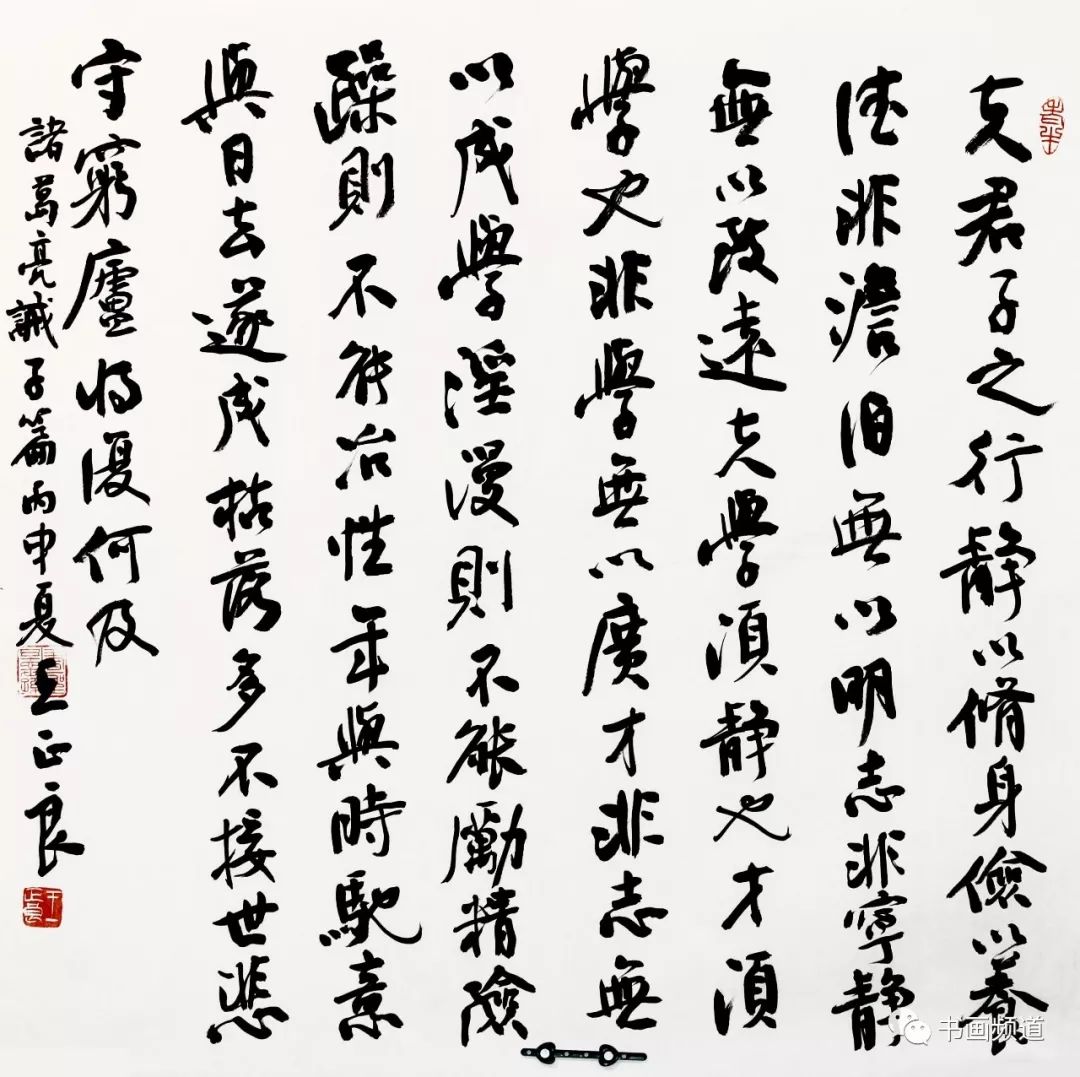 夫君子之行靜以脩身儉以養
德非澹泊無以明志非寧靜
無以致遠夫學須靜也才須
學也非學無以廣才非志無
以成學淫漫則不能勵精險
躁則不能冶性年與時馳意
與日去遂成枯落多不接世悲
守窮廬將復何及
諸葛亮誡子篇丙申夏王正良
书画频道